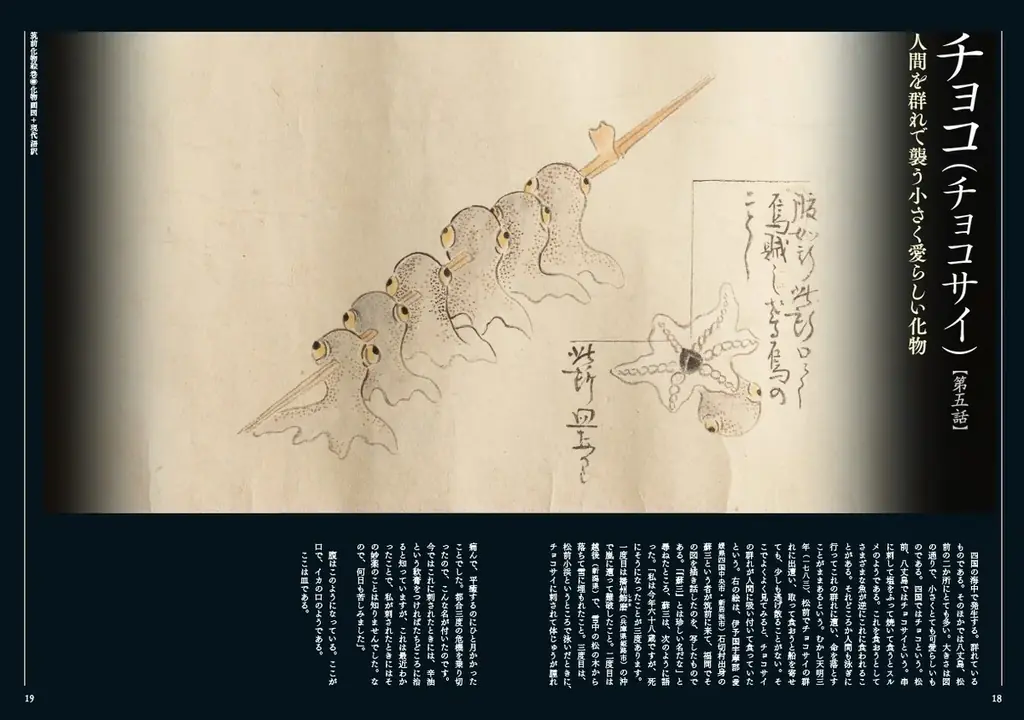 チョコ(チョコサイ)【第五話】
人間を群れで襲う小さく愛らしい化物
腹如斯此所口也
烏賊之
此所
四国の海中で発生する。群れている
ものである。そのほかでは八丈島、松
前の二か所にとても多い。大きさは図
の通りで、小さくとても可愛らしいも
のである。四国ではチョコという。松
前、八丈島ではチョコサイという。串
に刺して塩をふって焼いて食うとスル
メのようである。これを食おうとして
さまざまな魚が逆にこれに食われるこ
とがある。それどころか人間も泳ぎに
行ってこれの群れに遭い、命を落とす
ことがままあるという。むかし天明三
年(一七八三)、松前でチョコサイの群
れに出遭い、取って食おうと船を寄せ
ても、少しも逃げ散ることがない。そ
こでよくよく見てみると、チョコサイ
の群れが人間に吸い付いて食っていた
という。右の絵は、伊予国宇摩郡(愛
媛県四国中央市・新居浜市)石切村出身の
蘇三という者が筑前に来て、福岡でそ
の図を描き話したのを、写したもので
ある。「「蘇三」とは珍しい名だな」と
尋ねたところ、蘇三は、次のように語
った。「私は今年十八歳ですが、死
にそうになったことが三度あります。
一度目は播州飾磨(兵庫県姫路市)の沖
で嵐に遭って難破したこと。二度目は
越後(新潟県)で、雪中の松の木から
落ちて雪に埋もれたこと。三度目は、
松前小浜というところで泳いだときに、
チョコサイに刺されて体じゅうが腫れ
痛んで、平癒するのにひと月かかった
ことでした。都合三度の危機を乗り切
ったので、こんな名が付いたのです。
今ではこれに刺されたときには、辛油
という軟膏をつければたちどころに治
ると知っていますが、これは最近わか
ったことで、私が刺されたときにはそ
の妙薬のことは知りませんでした。な
ので、何日も苦しみました」。
腹はこのようになっている。ここが
口で、イカの口のようである。
ここは皿である。
筑前化物絵巻◉化物画図+現代語訳
18
19